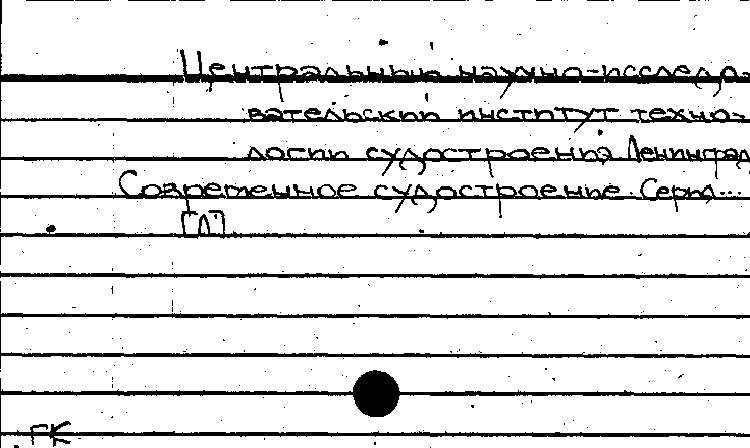 Центральный научно-исследо-
вательский институт техно-
логии судостроения Ленинград
Современное судостроение. Серия...
[Л]
ГК